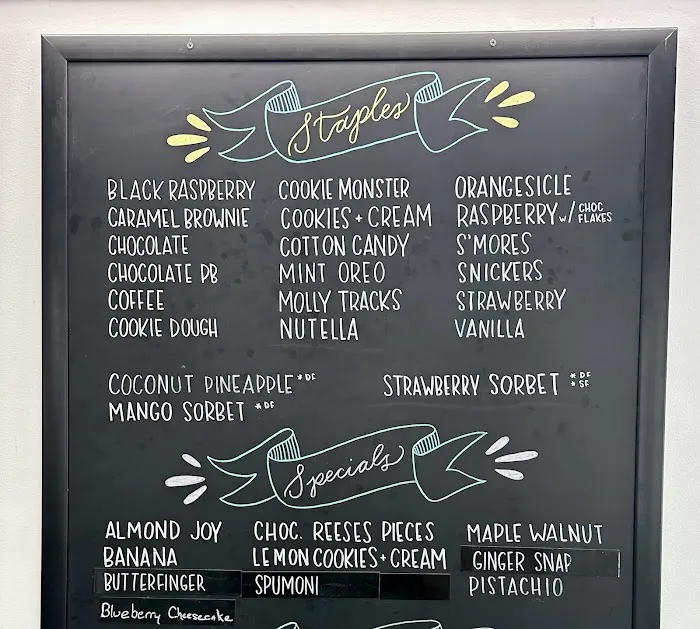 Staples
BLACK RASPBERRY
CARAMEL BROWNIE
CHOCOLATE
CHOCOLATE PB
COFFEE
COOKIE DOUGH
COOKIE MONSTER
COOKIES + CREAM
COTTON CANDY
MINT OREO
MOLLY TRACKS
NUTELLA
ORANGESICLE
RASPBERRY w/ CHOC FLAKES
S'MORES
SNICKERS
STRAWBERRY
VANILLA
COCONUT PINEAPPLE *DF
MANGO SORBET *DF
STRAWBERRY SORBET *DF *SF
Specials
ALMOND JOY
BANANA
BUTTERFINGER
Blueberry Cheesecake
CHOC. REESES PIECES
LEMON COOKIES + CREAM
SPUMONI
MAPLE WALNUT
GINGER SNAP
PISTACHIO